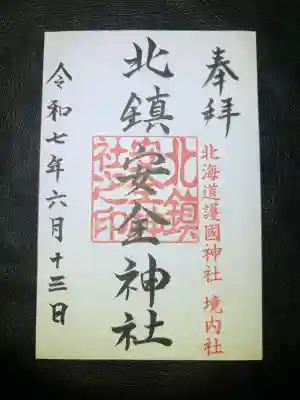 奉拝
北海道護國神社 境内社
北鎮安全神社
北鎮
安全神
社之印
令和七年六月十三日